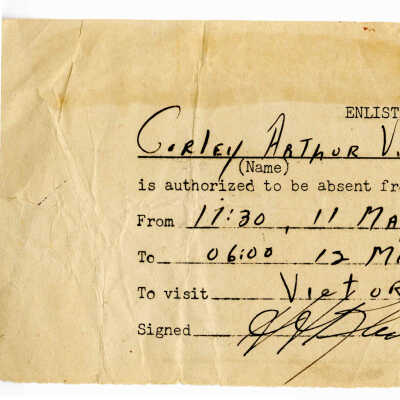 ENLIST
Corley Arthur V.
(Name)
is authorized to be absent fr
From 17:30, 11 Ma
To 06:00 12 M
To visit Victor
Signed